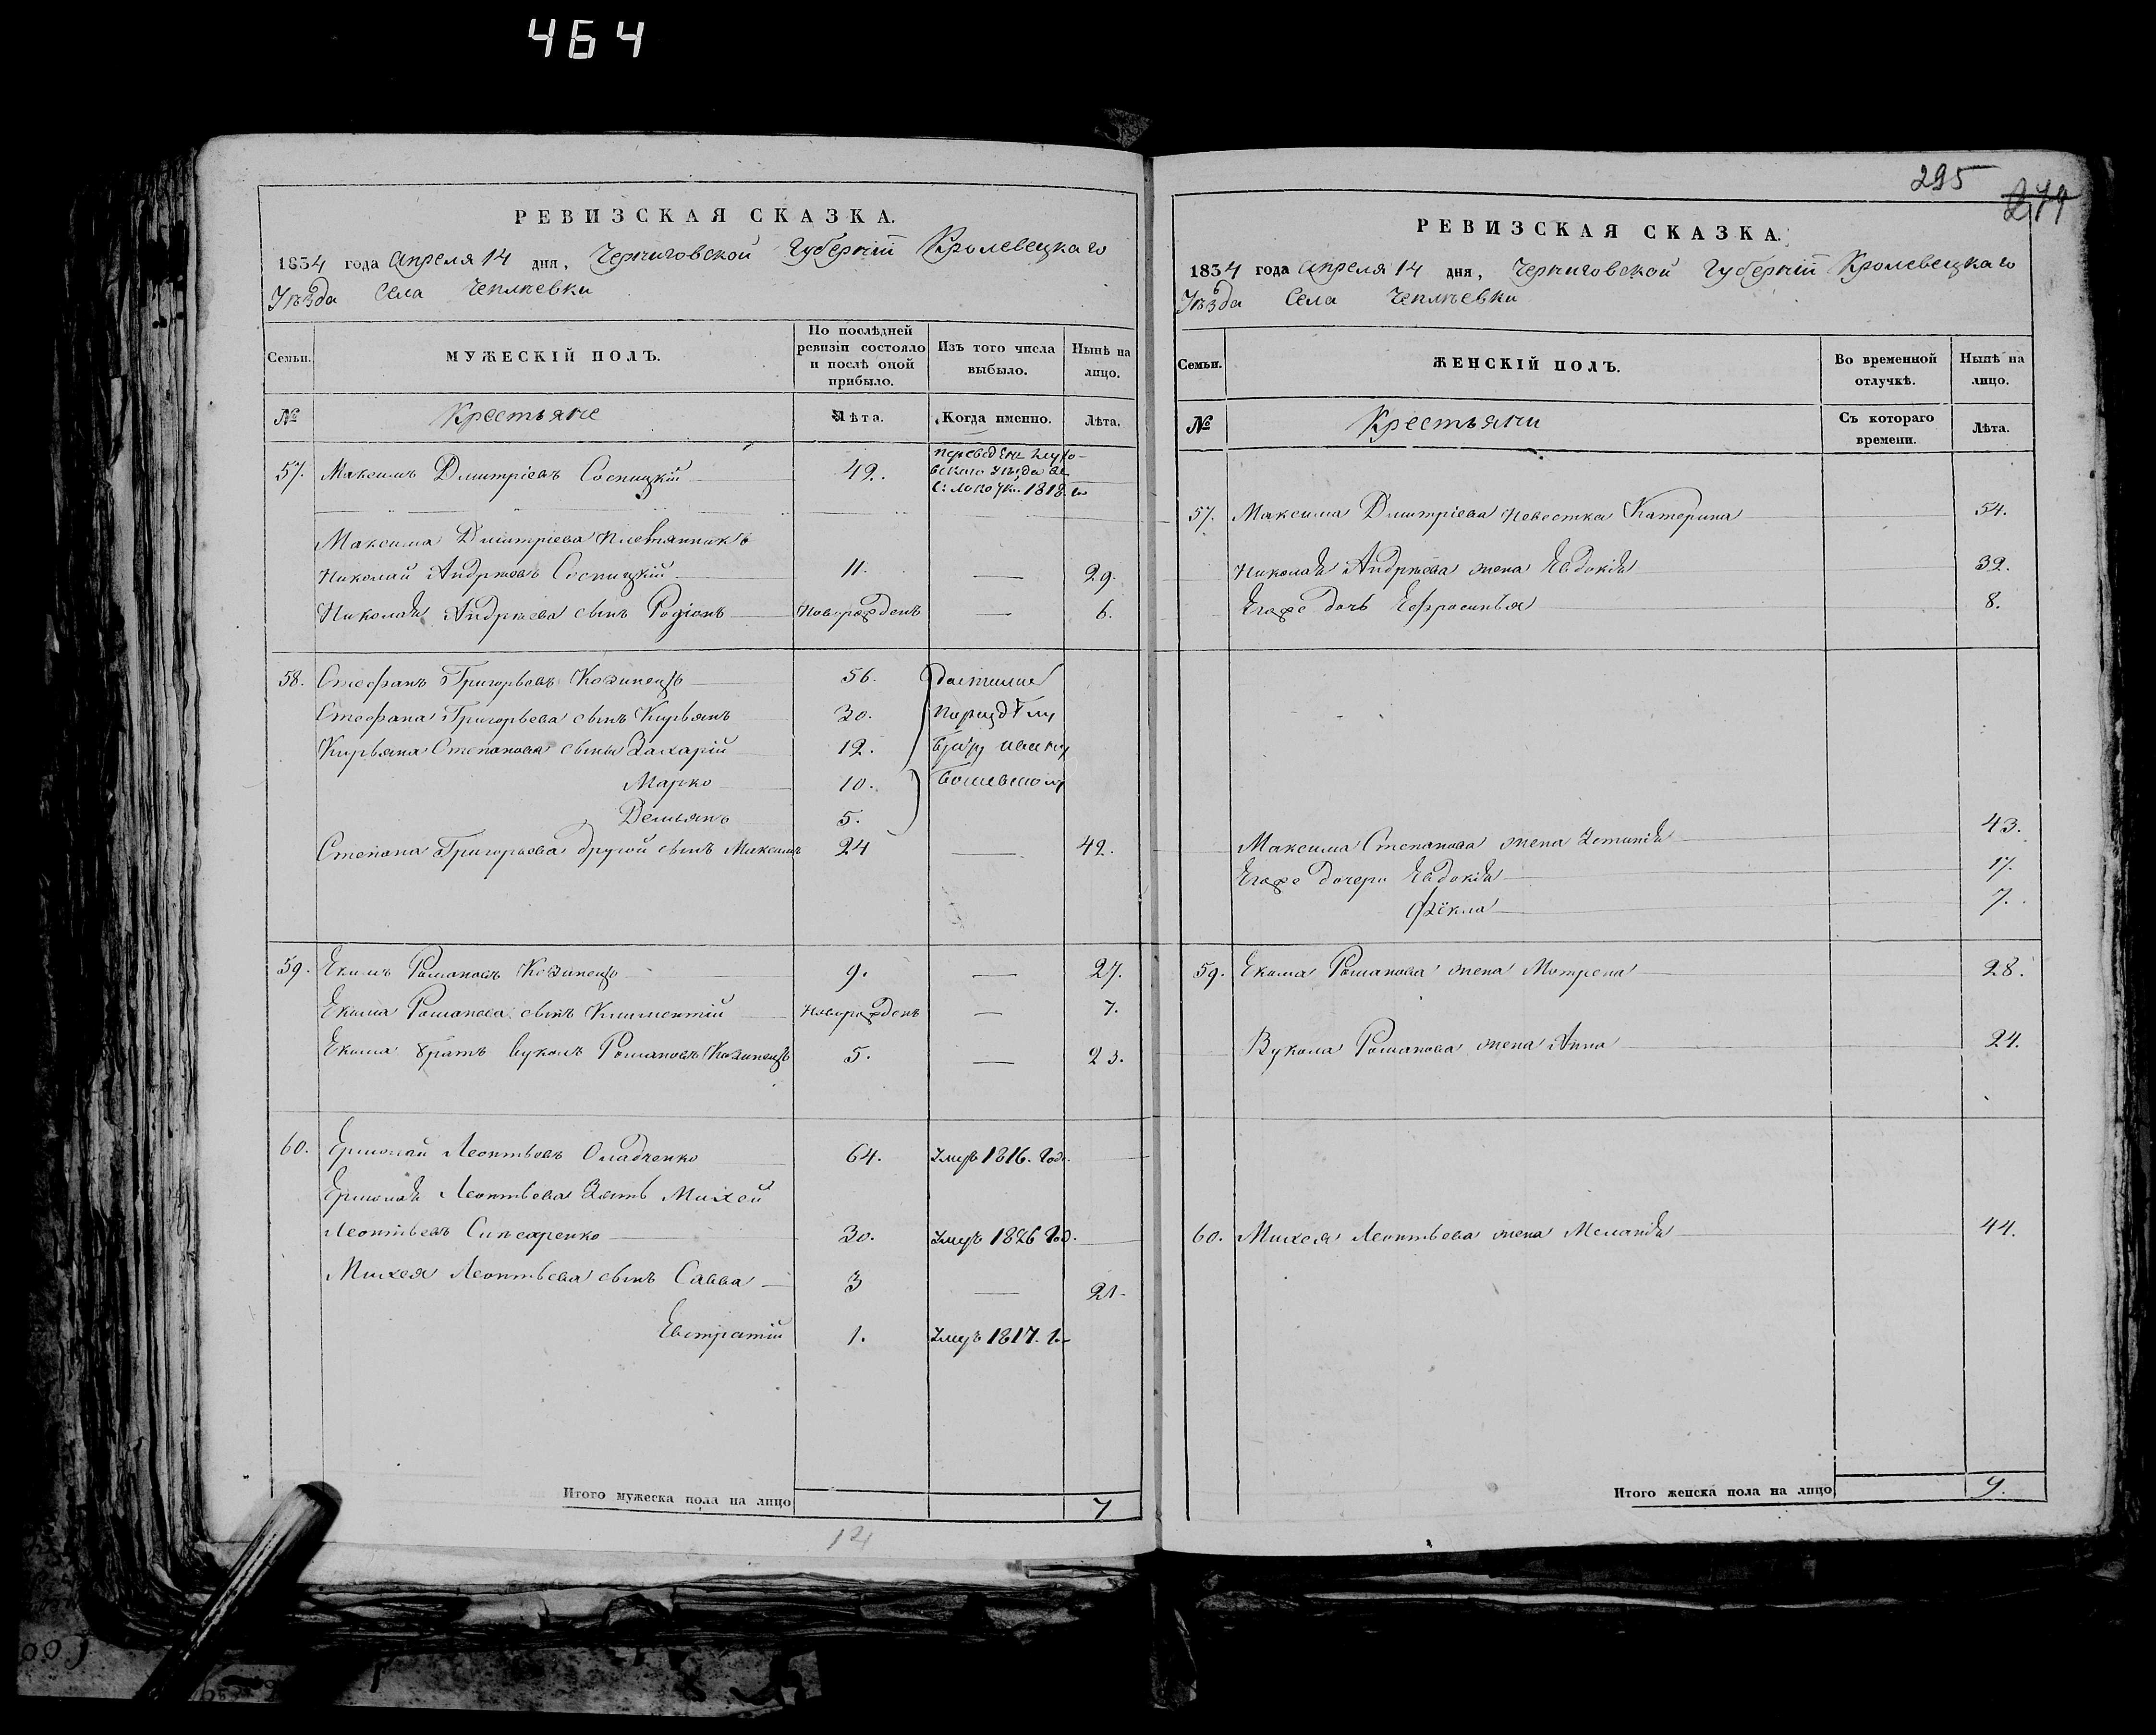 464
РЕВИЗСКАЯ СКАЗКА.
1834 года Апреля 14 дня, Черниговской Губерніи Кролевецкаго
Уѣзда Села Чеплѣевки
Семьи.
МУЖЕСКІЙ ПОЛЪ.
По послѣдней ревизіи состояло и послѣ оной прибыло.
Изъ того числа выбыло.
Нынѣ на лицо.
№ Крестьяне Лѣта. Когда именно. Лѣта.
57. Максимъ Дмитріевъ Сосницкій 49. переведенъ Глухо-
вскаго уѣзда въ
1818. го
Максима Дмитріева племянникъ
Николай Андреевъ Сосницкій 11. — 29.
Николая Андреева сынъ Родіонъ Новорожденъ — 6.
58. Стефанъ Григорьевъ Козинецъ 56. Достались
Стефана Григорьева сынъ Кирьянъ 30. по раздѣлу
Кирьяна Степанова сыны Захарій 12. Ивану
Марко 10.
Демьянъ 5.
Степана Григорьева другой сынъ Максимъ 24 — 42.
59. Екимъ Романовъ Козинецъ 9. — 27.
Екима Романова сынъ Климентій Новорожденъ — 7.
Екима братъ Вуколъ Романовъ Козинецъ 5. — 23.
60. Ермолай Леонтьевъ 64. Умеръ 1816. Года
Ермолая Леонтьева Зять Михей
Леонтьевъ 30. Умеръ 1826 Год.
Михея Леонтьева сынъ Савва 3 — 21
Евстратій 1. Умеръ 1817. г.
Итого мужеска пола на лицо 7
14
295
РЕВИЗСКАЯ СКАЗКА.
1834 года Апреля 14 дня, Черниговской Губерніи Кролевецкаго
Уѣзда Села Чеплѣевки
Семьи.
ЖЕНСКІЙ ПОЛЪ.
Во временной отлучкѣ.
Нынѣ на лицо.
№ Крестьяни Съ котораго времени. Лѣта.
57. Максима Дмитріева невестка Катерина 54.
Николая Андреева жена Евдокія 32.
Егоже дочь Ефросинья 8.
Максима Степанова жена 43.
Егоже дочери Евдокія 17.
Фёкла 7.
59. Екима Романова жена Мотрена 28.
Вукола Романова жена Анна 24.
60. Михея Леонтьева жена Меланія 44.
Итого женска пола на лицо 9.